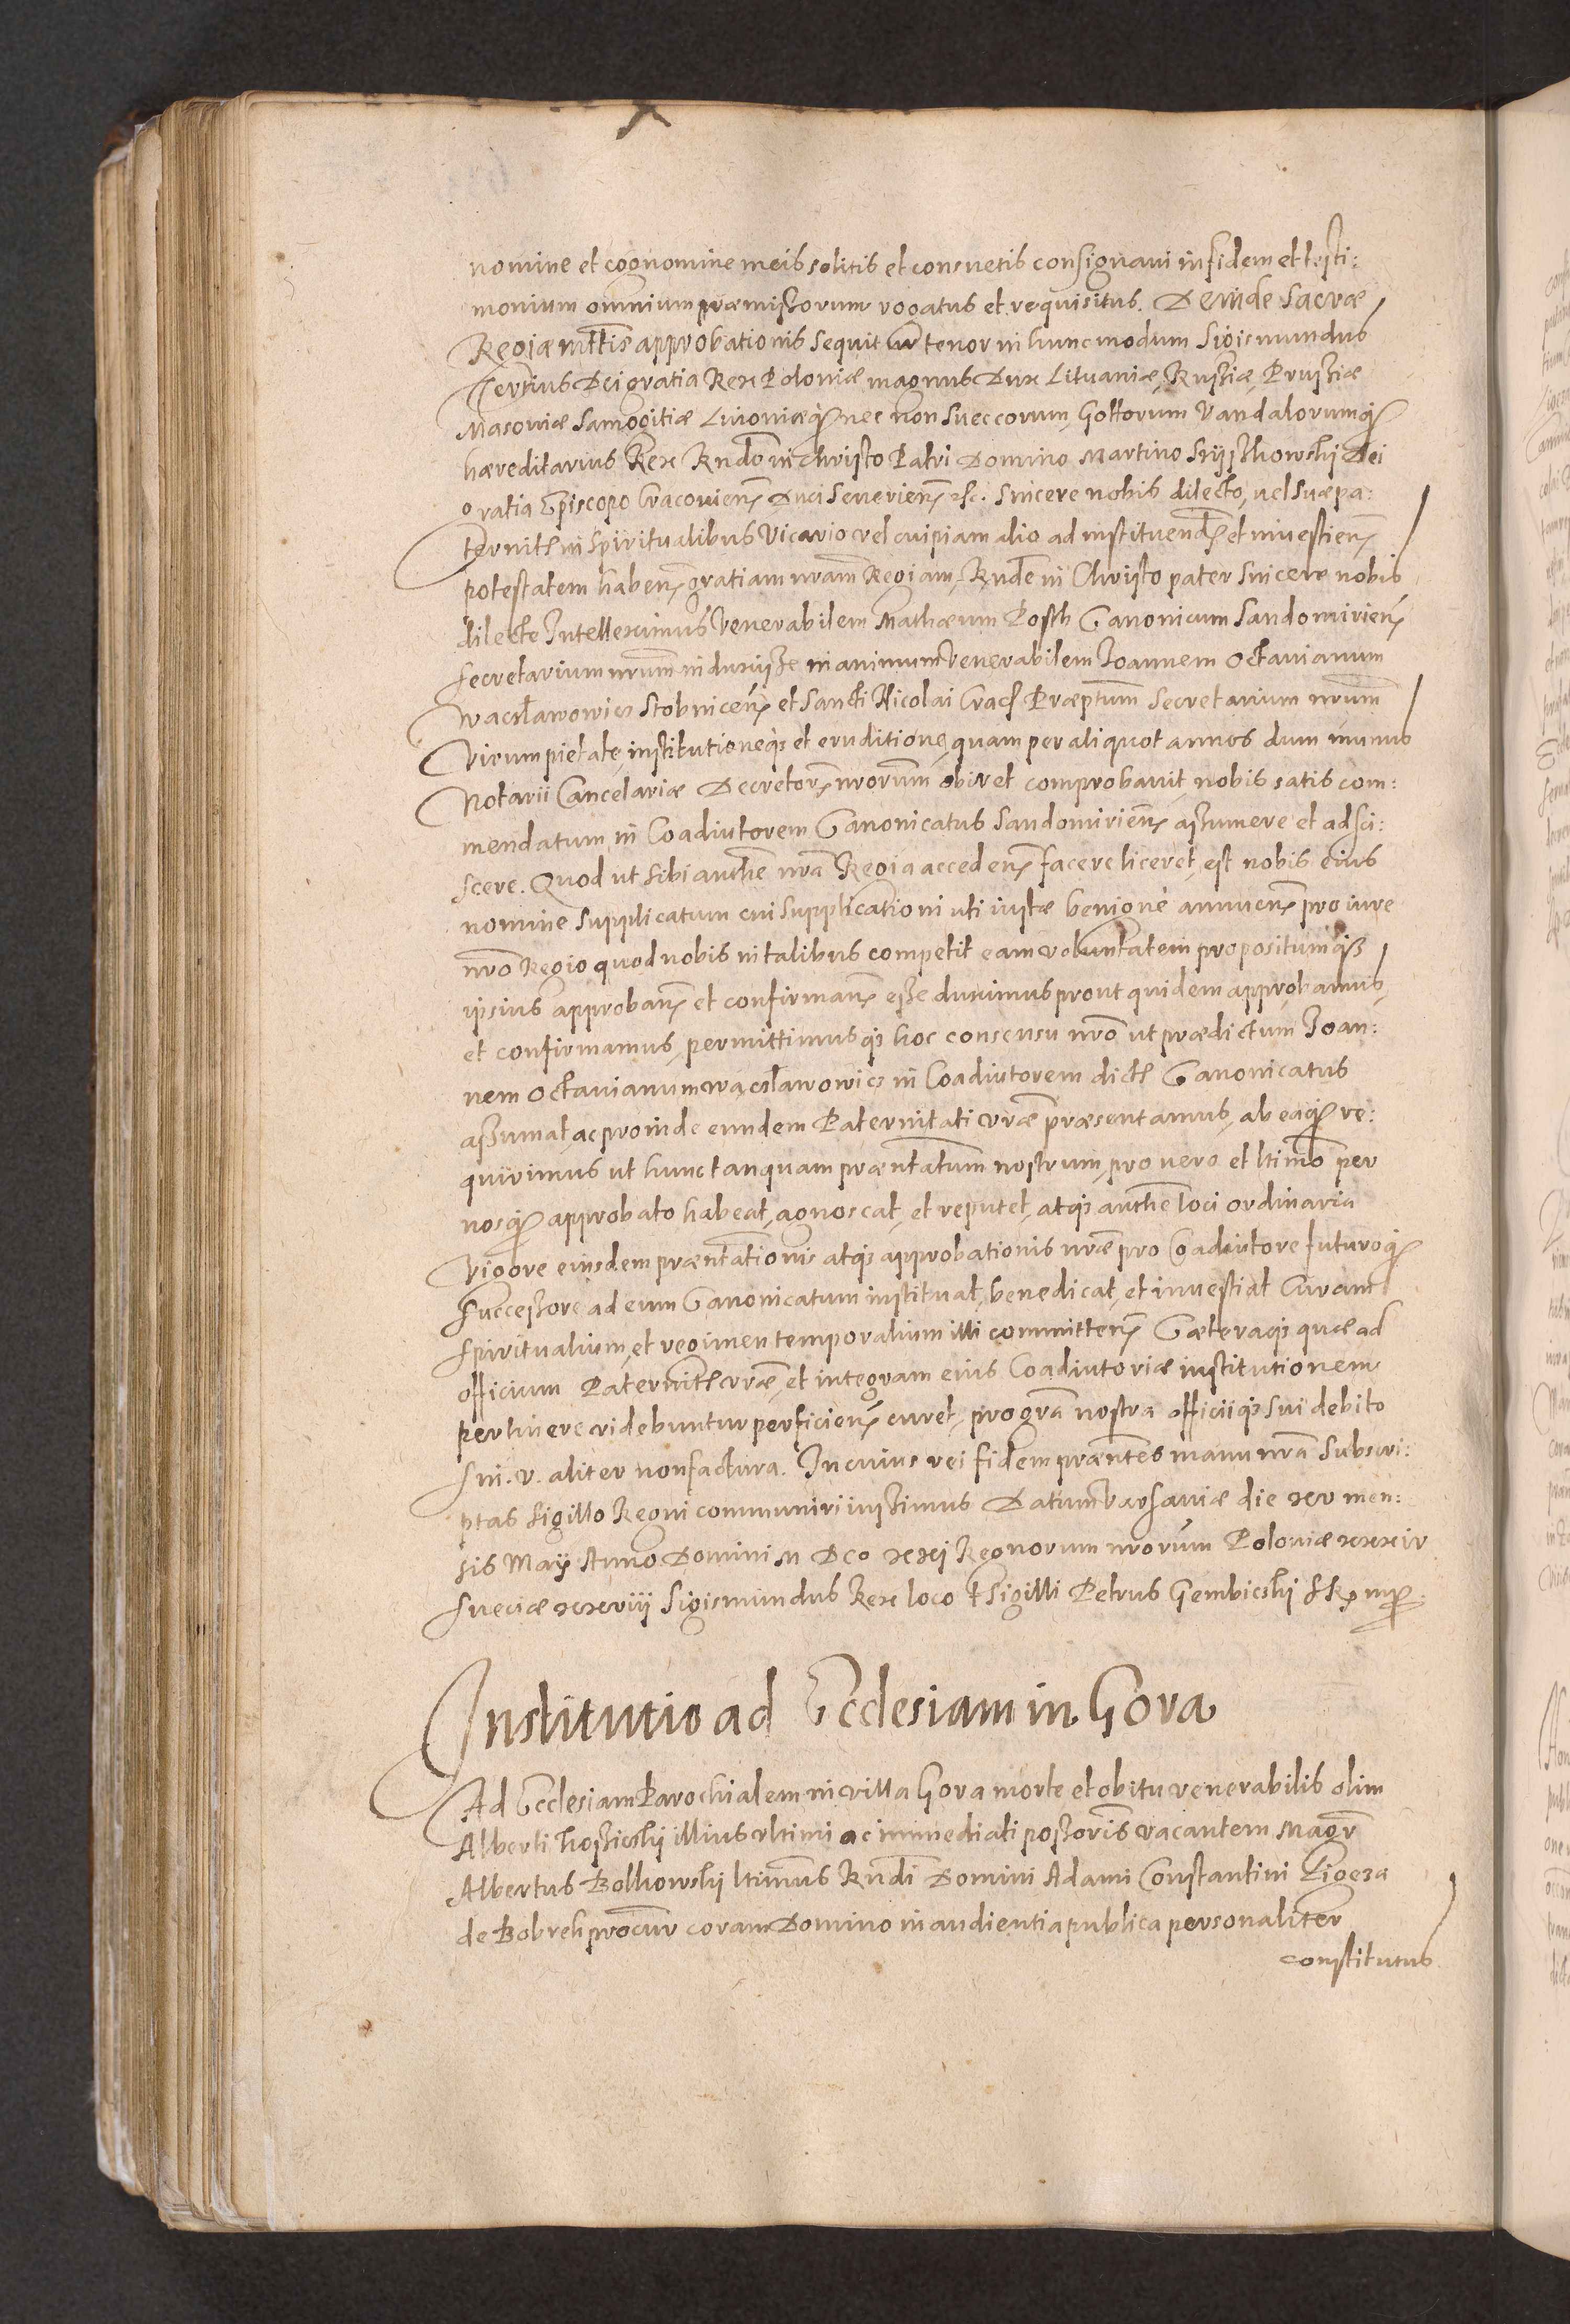 nomine et cognomine meis solitis et consuetis consignaui in fidem et testi:
monium omnium præmissorum rogatus et requisitus. Deinde Sacræ
Regiæ mttis approbationis sequitur tenor in hunc modum Sigismundus
Tertius Dei gratia Rex Poloniæ magnus Dux Lituaniæ, Russiæ, Prussiæ
Masoviæ Samogitiæ Liuoniæq; nec non Sueccorum, Gottorum Vandalorumq;
hæreditarius Rex Rndo in Christo Patri Domino Martino Szyszkowski Dei
gratia Episcopo Cracouien Duci Seuerien etc. Sincere nobis dilecto, uel suæ pa:
ternitt in Spiritualibus Vicario vel cuipiam alio ad instituend et inuestien
potestatem haben gratiam nram Regiam. Rnde in Christo pater Sincere nobis
dilecte Intelleximus Venerabilem Mathæum Posth Canonicum Sandomirien
secretarium nrum induxisse in animum Venerabilem Ioannem Octauianum
Wacslawowicz Stobnicen et Sancti Nicolai Crac Præptum Secretarium nrum
Virum pietate, institutioneq; et eruditione, quam per aliquot annos dum munus
Notarii Cancelariæ Decretor nrorum obiret comprobauit, nobis satis com:
mendatum, in Coadiutorem Canonicatus Sandomirien assumere et adsci:
scere. Quod ut sibi authe nra Regia acceden facere liceret, est nobis eius
nomine supplicatum cui supplicationi uti iustæ benigne annuen pro iure
nro Regio quod nobis in talibus competit eam voluntatem propositumq;
ipsius approban et confirman esse duximus prout quidem approbamus,
et confirmamus, permittimusq; hoc consensu nro ut prædictum Ioan:
nem Octauianum Wacslawowicz in Coadiutorem dict Canonicatus
assumat, ac proinde eundem Paternitati vræ præsentamus, ab eaq; re:
quirimus ut hunc tanquam præntatum nostrum, pro uero et ltimo per
nosq; approbato habeat, agnoscat, et reputet, atq; authe loci ordinaria
Vigore eiusdem præntationis atq; approbationis nræ pro Coadiutore futuroq;
Successore ad eum Canonicatum instituat, benedicat, et inuestiat Curam
spiritualium, et regimen temporalium illi committen Cæteraq; quæ ad
officium Paternitt vræ, et integram eius Coadiutoriæ institutionem
pertinere videbuntur perficien curet, pro gra nostra officiiq; sui debito
Sni. V. aliter non factura. In cuius rei fidem præntes manu nra Subscri:
ptas Sigillo Regni communiri iussimus Datum Varsauiæ die xxv men:
sis Maij Anno Domini M DCo xxj Regnorum nrorum Poloniæ xxxiv
Sueciæ xxviij Sigismundus Rex loco † Sigilli Petrus Gembicski SR mp
Institutio ad Ecclesiam in Gora
Ad Ecclesiam Parochialem in villa Gora morte et obitu venerabilis olim
Alberti Koszicski illius vltimi ac immediati possoris vacantem Magr
Albertus Bolkowski ltimus Rndi Domini Adami Constantini Ligeza
de Bobrek procur coram Domino in audientia publica personaliter
constitutus